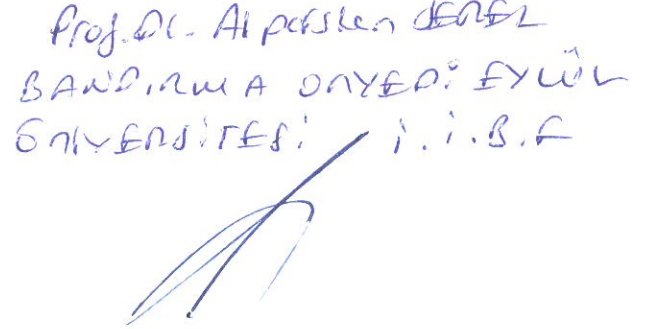 Prof. Dr. Alparslan SEREL
BANDIRMA ONYEDİ EYLÜL
ÜNİVERSİTESİ İ.İ.B.F